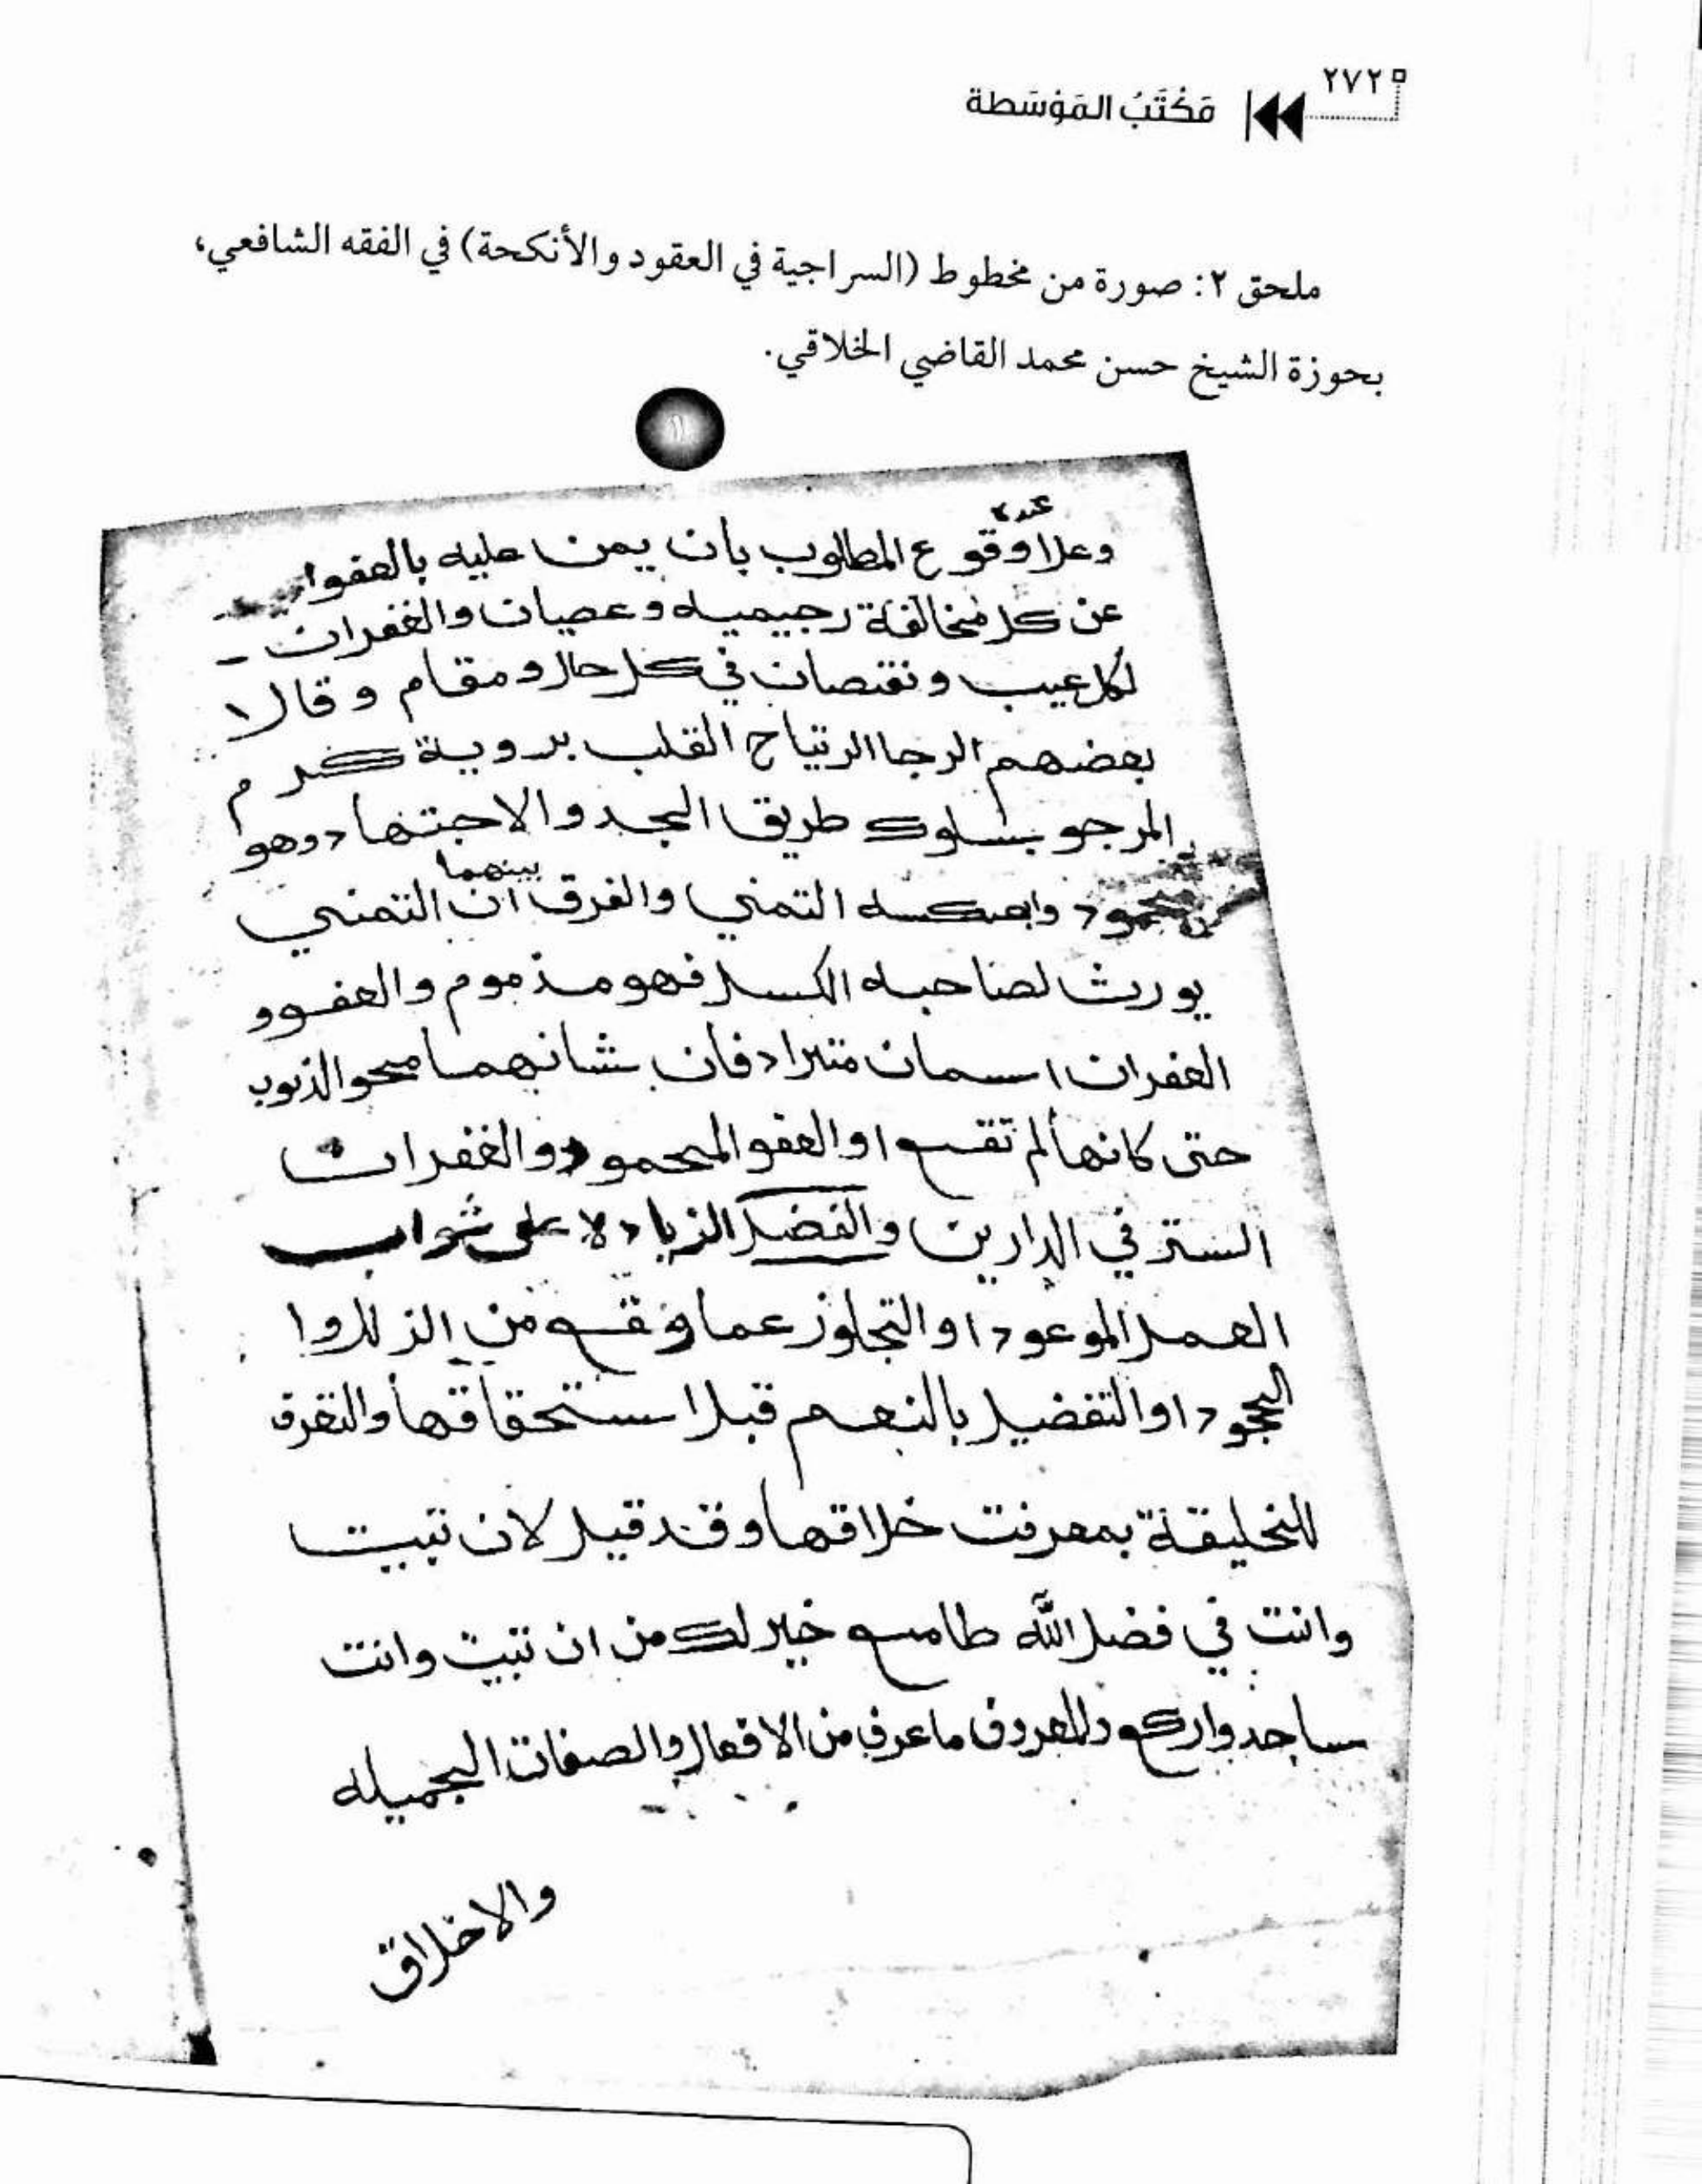 ٢٧٢
مَكْتَبُ المَوْسَطة
ملحق ٢: صورة من مخطوط (السراجية في العقود والأنكحة) في الفقه الشافعي،
بحوزة الشيخ حسن محمد القاضي الخلاقي.
١١
عدم
وعلا وقوع المطلوب بان يمن عليه بالعفوا
عن كل مخالفة رجيميه وعصيان والغفران
لكل عيب ونقصان في كل حال ومقام وقالا
بعضهم الرجا الرتياح القلب بروية كرم
المرجو بسلوك طريق الجد والاجتهاد وهوا
محمود وابعكسه التمني والفرق بينهما ان التمني
يورث لصاحبه الكسل فهو مذموم والعفو و
الغفران اسمان مترادفان شانهما محو الذنوب
حتى كانها لم تقع او العفو المحمود والغفران
الستر في الدارين والفضل الزيادة على ثواب
العمل الموعود او التجاوز عما وقع من الزلل وا
الجود او التفضيل بالنعم قبل استحقاقها والتفرق
للخليقة بمعرفت خلاقها وقد قيل لان تبيت
وانت في فضل الله طامع خير لك من ان تبيت وانت
ساجد وراكع والمعروف ما عرف من الافعال والصفات الجميله
والاخلاق